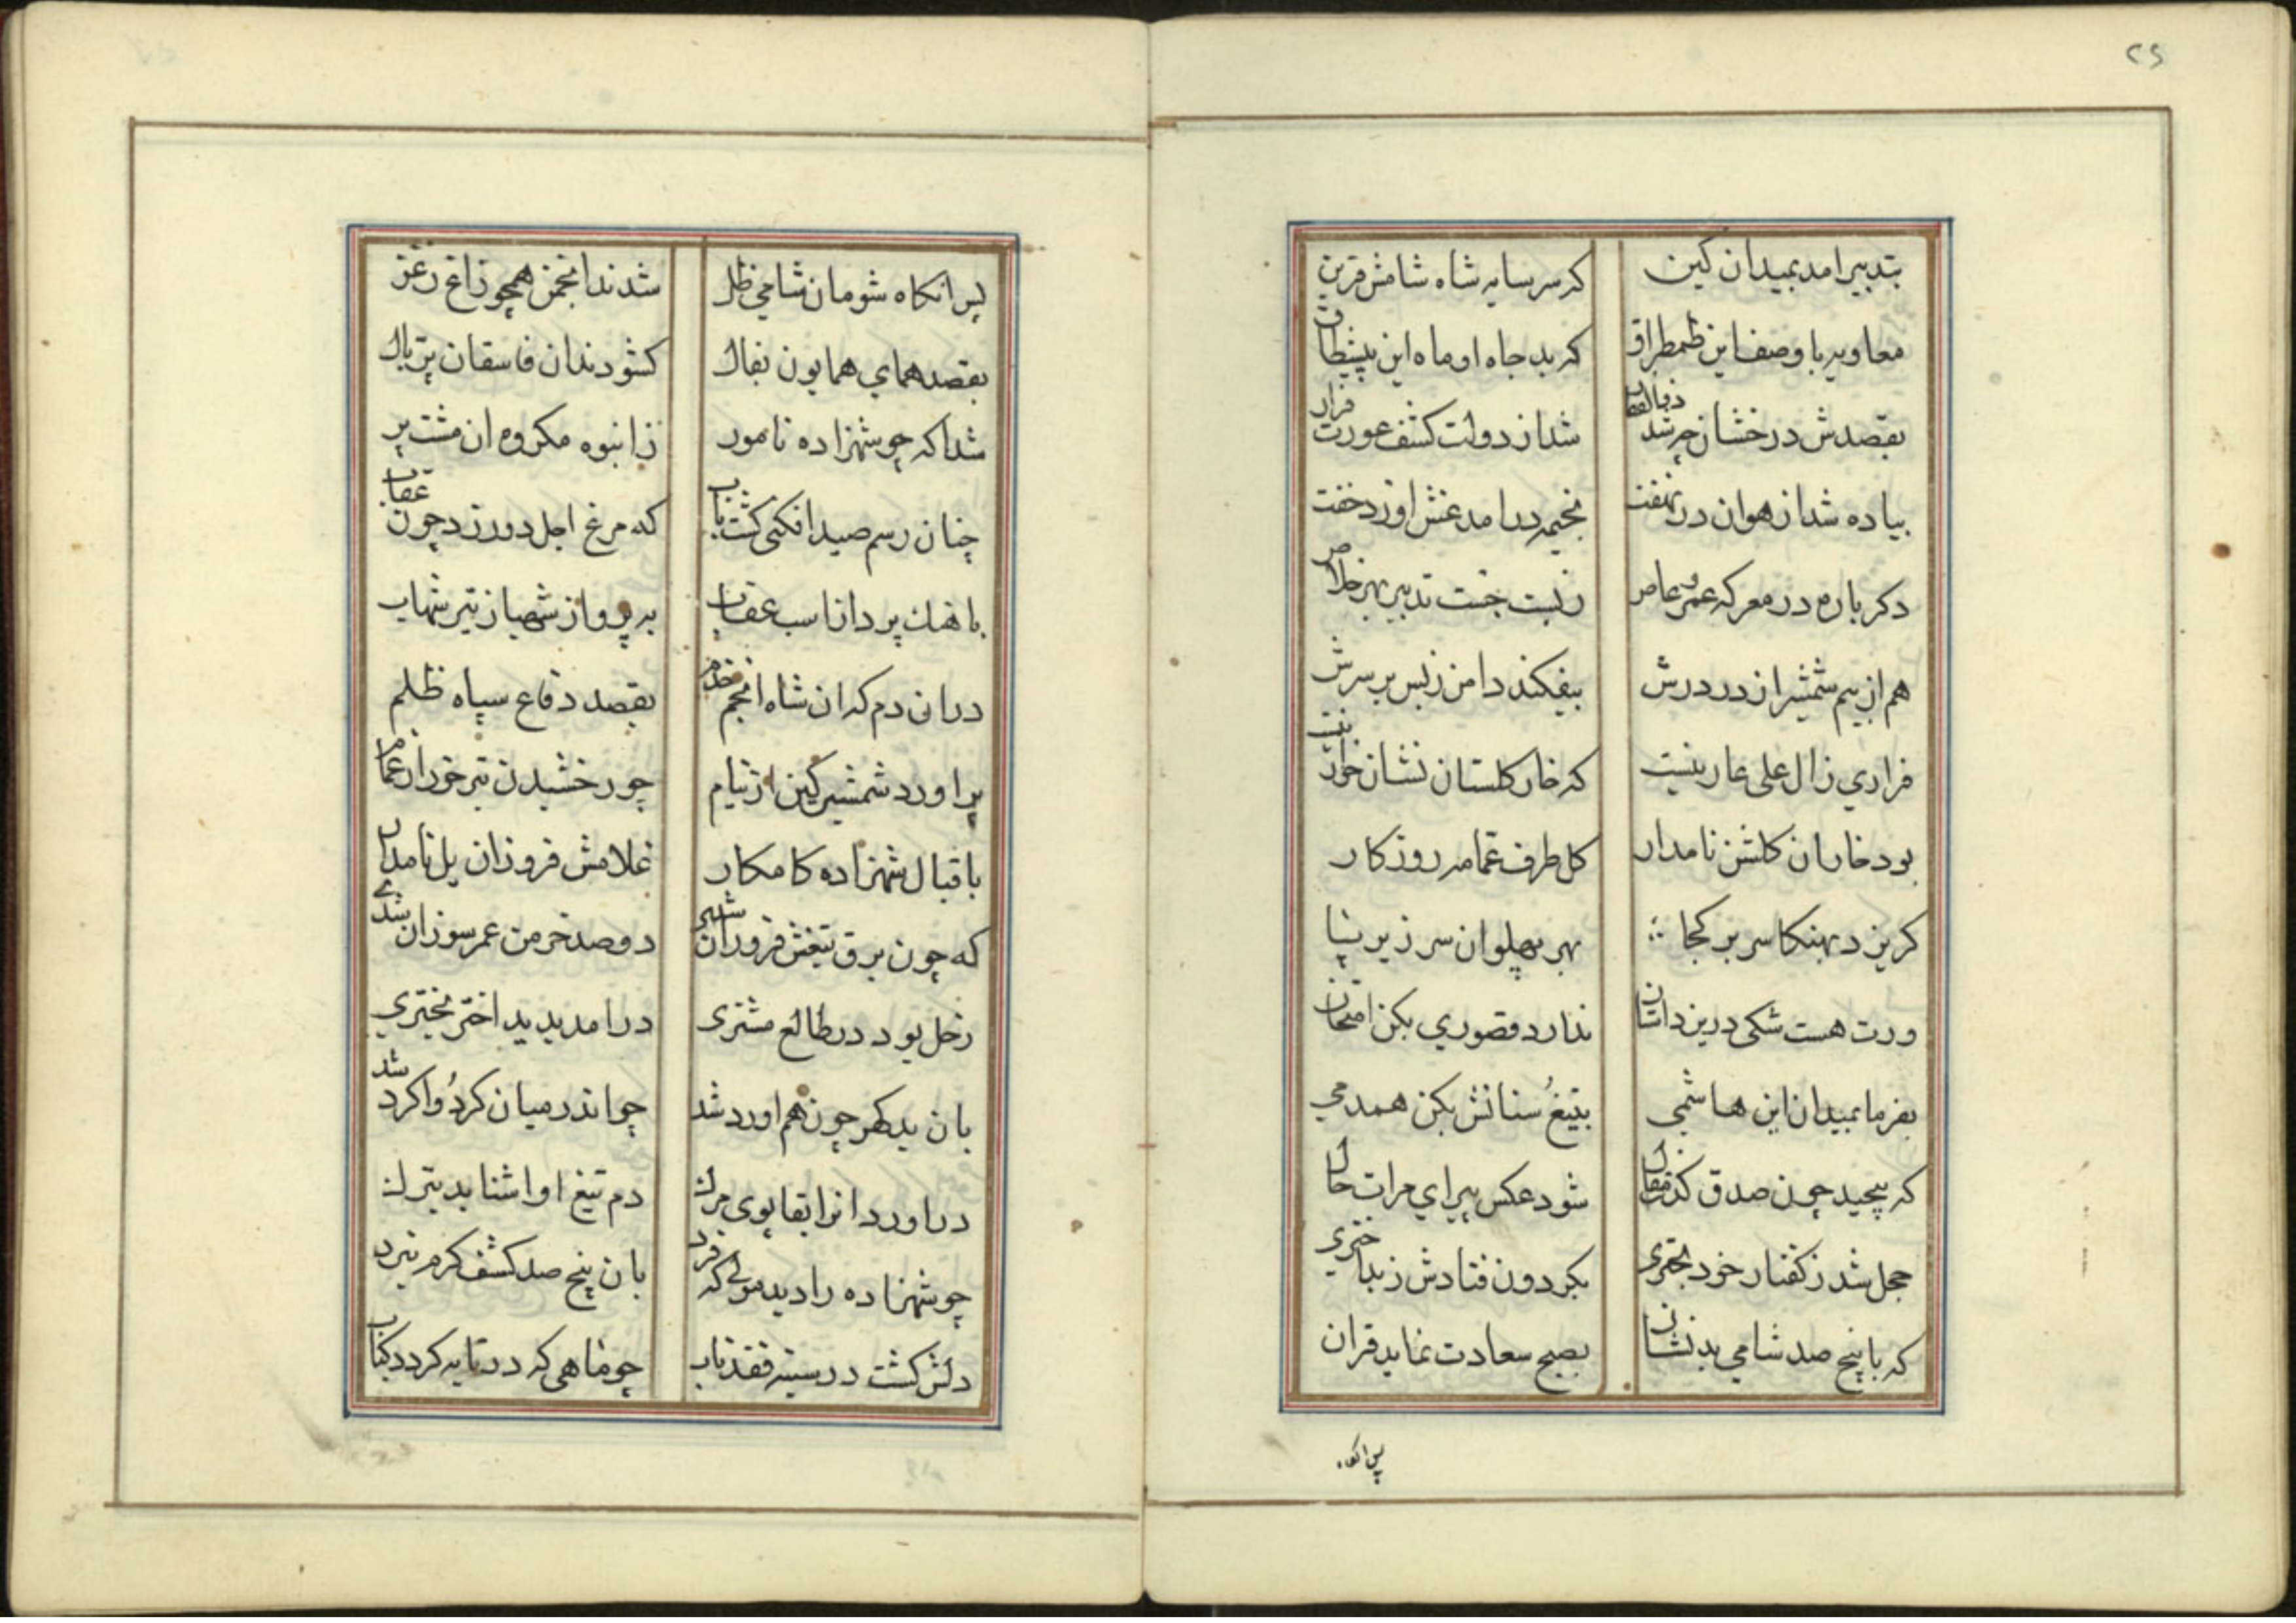 ۲۶
بتدبیر امد بمیدان کین که سر سایه شاه شامش قرین
معاویه با وصف این طمطراق که بد جاه او ماه این پیشطاق
بقصدش درخشان چه شد ذوالفقار شد از دولت کشف عورت فرار
پیاده شد از هوان در نهفت بخیمه درامد غش اورد خفت
دکر باره در معرکه عمرو عاص زبست جست تدبیر بهر خلاص
هم از بیم شمشیر ان در درش بیفکند دامن ز پس بر سرش
فراری ز ال علی عار نیست که خار کلستان نشان خوار نیست
بود خار ان کلشن نامدار کل طرف عمامه روزکار
کریزد نهنکا سر بر کجا بهر پهلوان سر ز یر بپا
ورت هست شکی درین داستان ندارد قصوری بکن امتحان
بفرما بمیدان این هاشمی بتیغ سنانش بکن همدمی
که پیچید چون صدق کذب مقال شود عکس پیرای مرات حال
خجل شد ز کفتار خود بختری بکردون فتادش ز بد اختری
که با پنج صد شامی بدنشان بصبح سعادت نماید قران
پس انکاه
پس انکاه شومان شامی ظلل شدند انجمن همچو زاغ زغن
بقصد همای همایون بفال کشودند ان فاسقان پر بال
شد اکه چو شهزاده نامور ز انبوه مکروه ان مشت پر
چنان رسم صید افکنی کشت باب که مرغ اجل دور زد چون عقاب
باهنک پرداز ناسب عقاب به پرواز شهباز تیر شهاب
دران دم که ان شاه انجم خدم بقصد دفاع سپاه ظلم
براورد شمشیر کین از نیام چو رخشیدن تیر خور از غمام
باقبال شهزاده کامکار غلامش فروزان یل نامدار
که چون برق تیغش فروزان شدی دو صد خرمن عمر سوزان شدی
زحل بود در طالع مشتری درامد پدید اختر بختری
بان بد کهر چون هم اورد شد چو اندر میان کرد و اکرد شد
دراورد انرا بقابوی مرک دم تیغ او اشنا بد بترک
چو شهزاده را دید مولی که فرد بان پنج صد کشف کرم نبرد
دلش کشت در سینه فقد تاب چو ماهی که در تابه کردد کباب